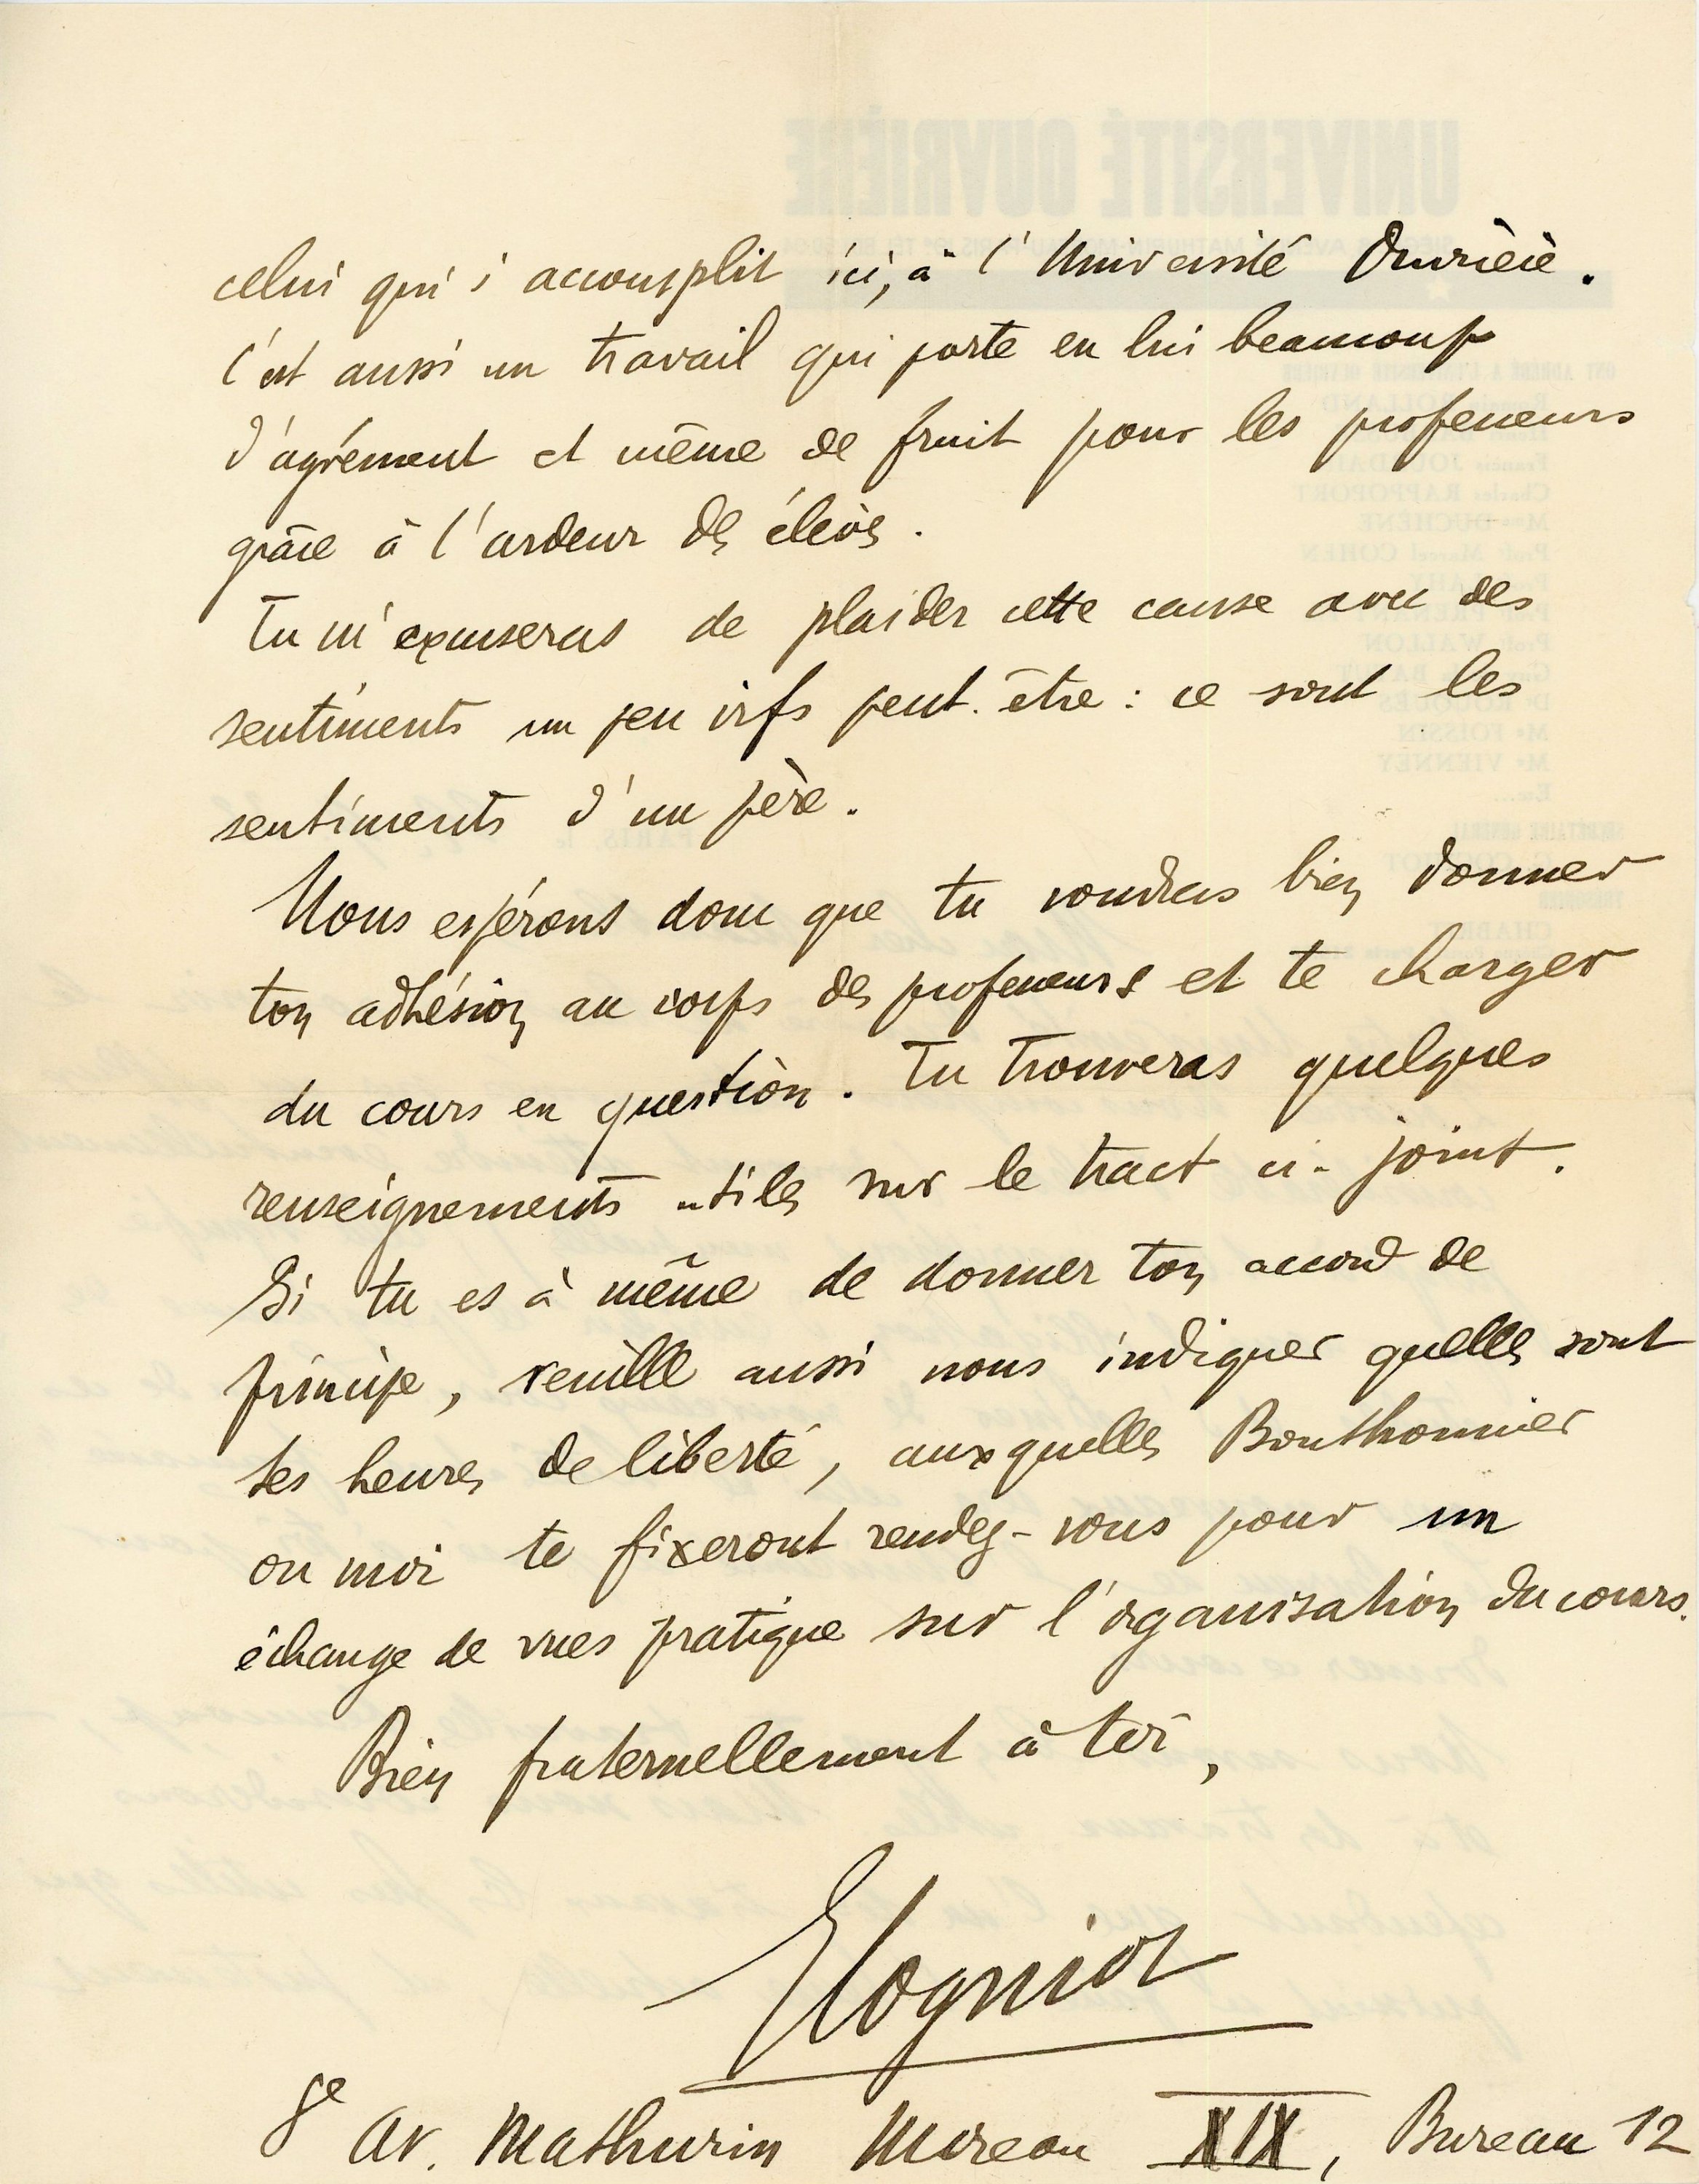 celui qui s'accomplit ici, à l'Université Ouvrière.
C'est aussi un travail qui porte en lui beaucoup
d'agrément et même de fruit pour les professeurs
grâce à l'ardeur des élèves.
Tu m'excuseras de plaider cette cause avec des
sentiments un peu vifs peut-être : ce sont les
sentiments d'un père.
Nous espérons donc que tu voudras bien donner
ton adhésion au corps des professeurs et te charger
du cours en question. Tu trouveras quelques
renseignements utiles sur le tract ci-joint.
Si tu es à même de donner ton accord de
principe, veuille aussi nous indiquer quelles sont
tes heures de liberté, auxquelles Bouthonnier
ou moi te fixeront rendez-vous pour un
échange de vues pratique sur l'organisation du cours.
Bien fraternellement à toi,
Cogniot
8e av. Mathurin Moreau XIX, Bureau 12
UNIVERSITÉ OUVRIÈRE
Francis JOURDAIN
Charles RAPPOPORT
Mme DUCHENE
Prof. Marcel COHEN
Prof. WALLON
Dr ROUQUÈS
Me FOISSIN
Me VIENNEY
PARIS, le